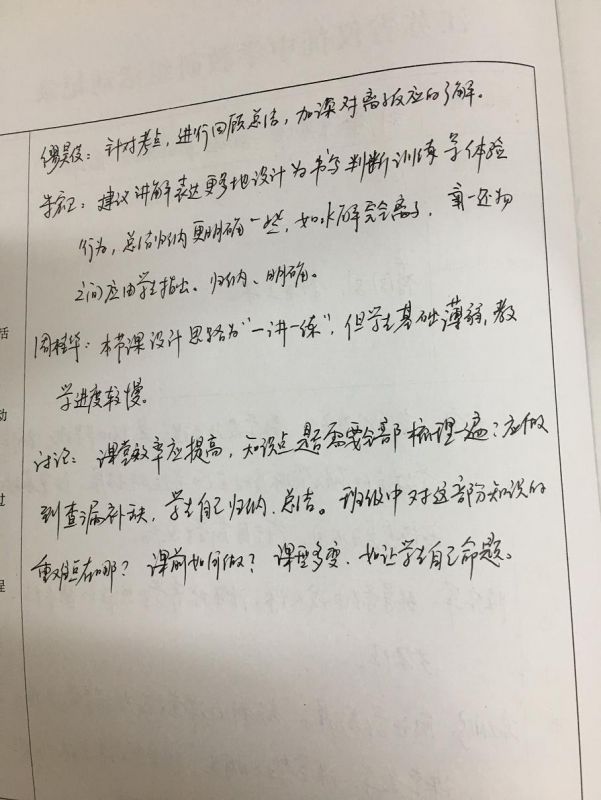 针对考点，进行回顾总结，加深对离子反应的了解。
建议讲解表达更多地设计为书写判断训练 学体验
行为，总结归纳更明确一些，如水解完全离子，氧—还物
之间应由学生指出、归纳、明确。
周桂华：本节课设计思路为“一讲一练”，但学生基础薄弱，教
学进度较慢。
讨论：课堂效率应提高，知识点是否需要全部梳理一遍？应做
到查漏补缺，学生自己归纳、总结。班级中对这部分知识的
重难点在哪？课前如何做？课型多变，如让学生自己命题。
活
动
过
程